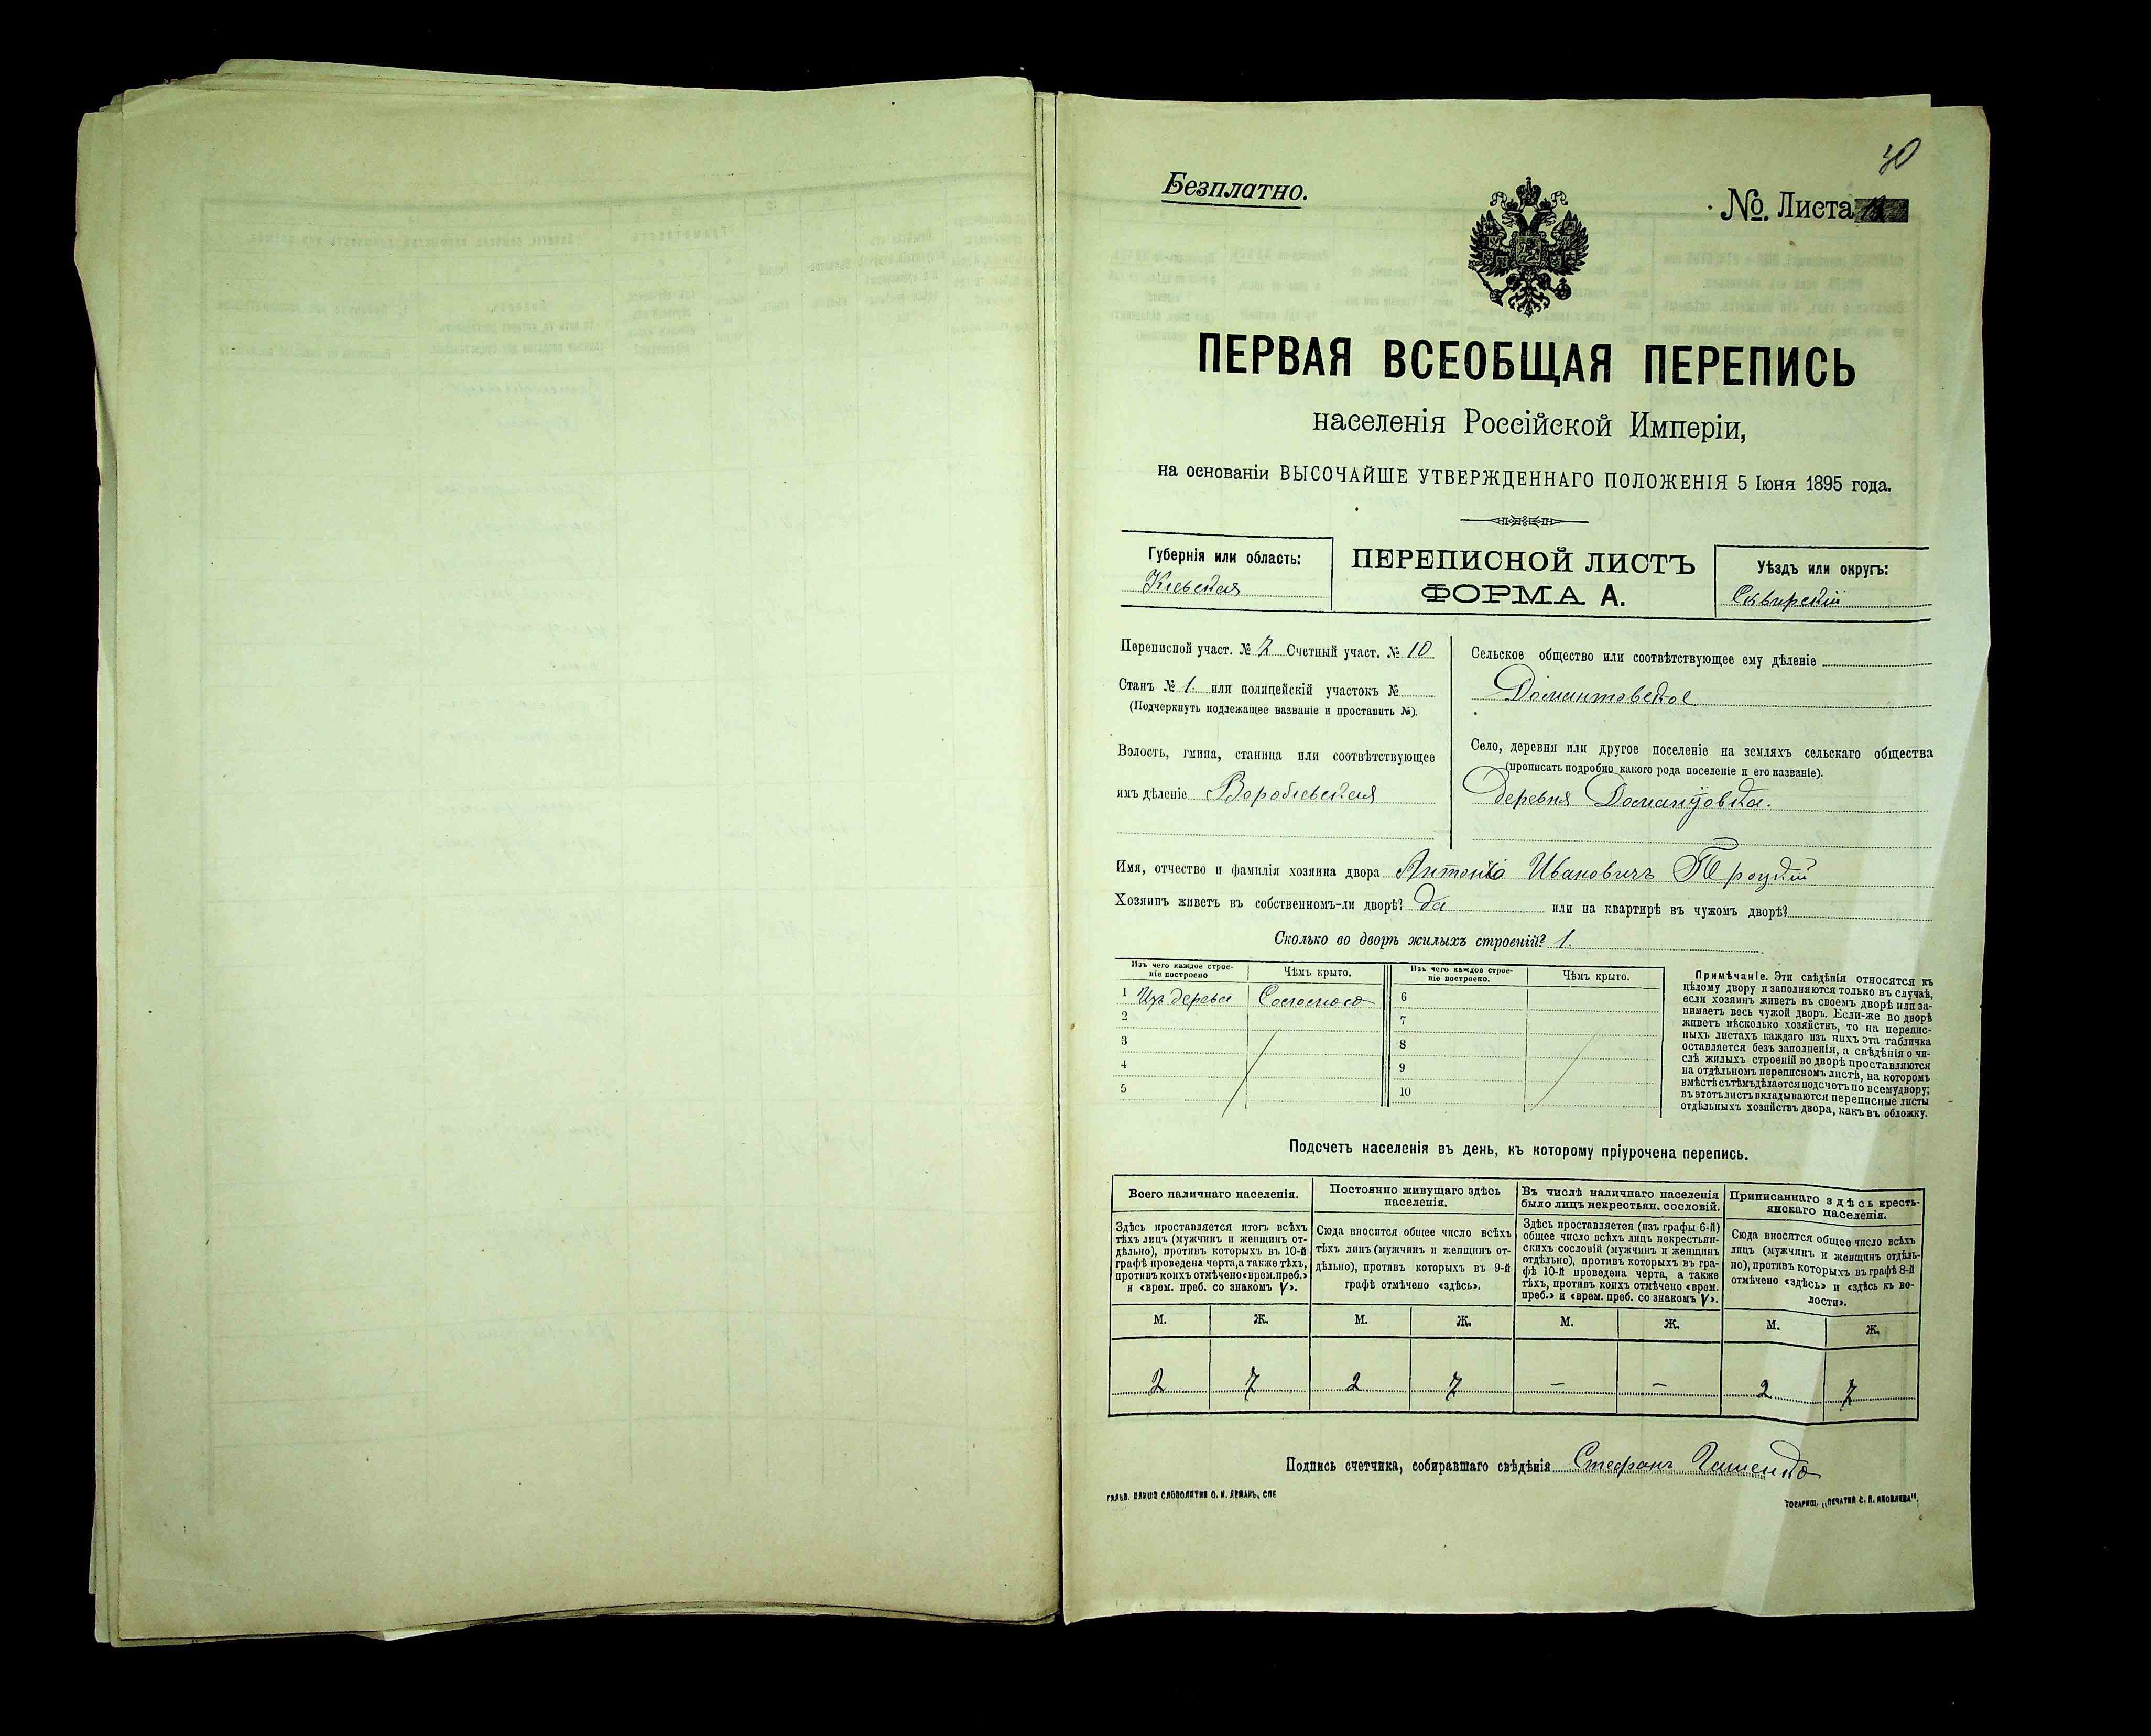 30
Безплатно.
№. Листа
ПЕРВАЯ ВСЕОБЩАЯ ПЕРЕПИСЬ
населенія Россійской Имперіи,
на основаніи ВЫСОЧАЙШЕ УТВЕРЖДЕННАГО ПОЛОЖЕНІЯ 5 Іюня 1895 года.
Губернія или область:
Кіевская
ПЕРЕПИСНОЙ ЛИСТЪ
ФОРМА А.
Уѣздъ или округъ:
Сквирскій
Переписной участ. № 7 Счетный участ. № 10
Станъ № 1. или полицейскій участокъ №
(Подчеркнуть подлежащее названіе и проставить №).
Волость, гмина, станица или соотвѣтствующее
имъ дѣленіе Воробіевская
Сельское общество или соотвѣтствующее ему дѣленіе
Домантовское
Село, деревня или другое поселеніе на земляхъ сельскаго общества
(прописать подробно какого рода поселеніе и его названіе).
деревня
Имя, отчество и фамилія хозяина двора Ивановичъ Троцкій
Хозяинъ живетъ въ собственномъ-ли дворѣ? да или на квартирѣ въ чужомъ дворѣ?
Сколько во дворѣ жилыхъ строеній? 1.
Изъ чего каждое строе-
ніе построено
Чѣмъ крыто.
Изъ чего каждое строе-
ніе построено.
Чѣмъ крыто.
1 Изъ дерева Соломою
2
3
4
5
6
7
8
9
10
Примѣчаніе. Эти свѣдѣнія относятся къ
цѣлому двору и заполняются только въ случаѣ,
если хозяинъ живетъ въ своемъ дворѣ или за-
нимаетъ весь чужой дворъ. Если-же во дворѣ
живетъ нѣсколько хозяйствъ, то на перепис-
ныхъ листахъ каждаго изъ нихъ эта табличка
оставляется безъ заполненія, а свѣдѣнія о чи-
слѣ жилыхъ строеній во дворѣ проставляются
на отдѣльномъ переписномъ листѣ, на которомъ
вмѣстѣ съ тѣмъ дѣлается подсчетъ по всему двору;
въ этотъ листъ вкладываются переписные листы
отдѣльныхъ хозяйствъ двора, какъ въ обложку.
Подсчетъ населенія въ день, къ которому пріурочена перепись.
Всего наличнаго населенія.
Здѣсь проставляется итогъ всѣхъ
тѣхъ лицъ (мужчинъ и женщинъ от-
дѣльно), противъ которыхъ въ 10-й
графѣ проведена черта, а также тѣхъ,
противъ коихъ отмѣчено «врем. преб.»
и «врем. преб. со знакомъ V».
Постоянно живущаго здѣсь
населенія.
Сюда вносится общее число всѣхъ
тѣхъ лицъ (мужчинъ и женщинъ от-
дѣльно), противъ которыхъ въ 9-й
графѣ отмѣчено «здѣсь».
Въ числѣ наличнаго населенія
было лицъ некрестьян. сословій.
Здѣсь проставляется (изъ графы 6-й)
общее число всѣхъ лицъ некрестьян-
скихъ сословій (мужчинъ и женщинъ
отдѣльно), противъ которыхъ въ гра-
фѣ 10-й проведена черта, а также
тѣхъ, противъ коихъ отмѣчено «врем.
преб.» и «врем. преб. со знакомъ V».
Приписаннаго здѣсь кресть-
янскаго населенія.
Сюда вносится общее число всѣхъ
лицъ (мужчинъ и женщинъ отдѣль-
но), противъ которыхъ въ графѣ 8-й
отмѣчено «здѣсь» и «здѣсь къ во-
лости».
М. Ж. М. Ж. М. Ж. М. Ж.
2 7 2 7 – – 2 7
Подпись счетчика, собиравшаго свѣдѣнія Стефанъ
ГАЛЬВ. КЛИШЕ СЛОВОЛИТНИ О. И. ЛЕМАНЪ, СПБ
ТОВАРИЩ. „ПЕЧАТНЯ С. П. ЯКОВЛЕВА".